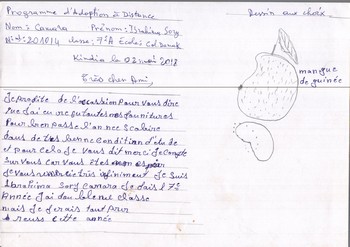 Programme d'Adoption à Distance
Nom: Camara Prénom: Ibrahima Sory
N: 201014 classe: 7èA Ecole: Col Donak
Kindia le 02 mai 2018
Très cher Ami,
Je profite de l'occasion pour vous dire
que j'ai eu reçu toutes nos fournitures
Pour bien passé l'année scolaire
dans de très bonne condition d'étude
et pour celo Je vous dit merci Je compte
sur vous car vous êtes mon espoir
Je vous remercie très infiniment Je suis
Ibrahima Sory Camara Je fais l 7è
Année J'ai doublé une classe
mais Je ferais tout pour
reuss cette année
Dessin aux choix.
mangue
de guinée